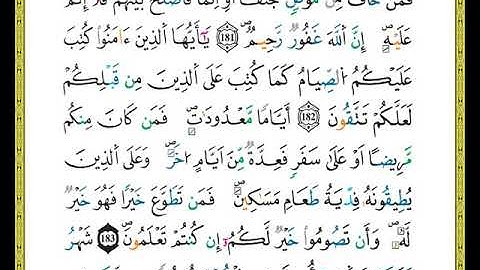 فَمَنْ خَافَ مِن مُّوصٍ جَنَفًا أَوِ اِثْمًا فَأَصْلَحَ بَيْنَهُمْ فَلَا إِثْمَ
عَلَيْهِ إِنَّ اَللَّهَ غَفُورٌ رَّحِيمٌ ﴿181﴾ يَٰٓأَيُّهَا اَلَّذِينَ ءَامَنُوا كُتِبَ
عَلَيْكُمُ اُلصِّيَامُ كَمَا كُتِبَ عَلَى اَلَّذِينَ مِن قَبْلِكُمْ
لَعَلَّكُمْ تَتَّقُونَ ﴿182﴾ أَيَّامًا مَّعْدُودَٰتٍ فَمَن كَانَ مِنكُم
مَّرِيضًا اَوْ عَلَىٰ سَفَرٍ فَعِدَّةٌ مِّنَ اَيَّامٍ اُخَرَ وَعَلَى اَلَّذِينَ
يُطِيقُونَهُ فِدْيَةُ طَعَامِ مَسَٰكِينَ فَمَن تَطَوَّعَ خَيْرًا فَهُوَ خَيْرٌ
لَّهُ وَأَن تَصُومُوا خَيْرٌ لَّكُمُ إِن كُنتُمْ تَعْلَمُونَ ﴿183﴾ شَهْرُ